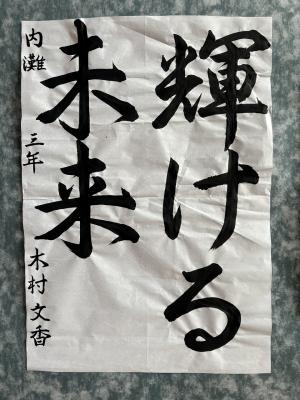 輝ける
未来
内灘 三年 木村文香